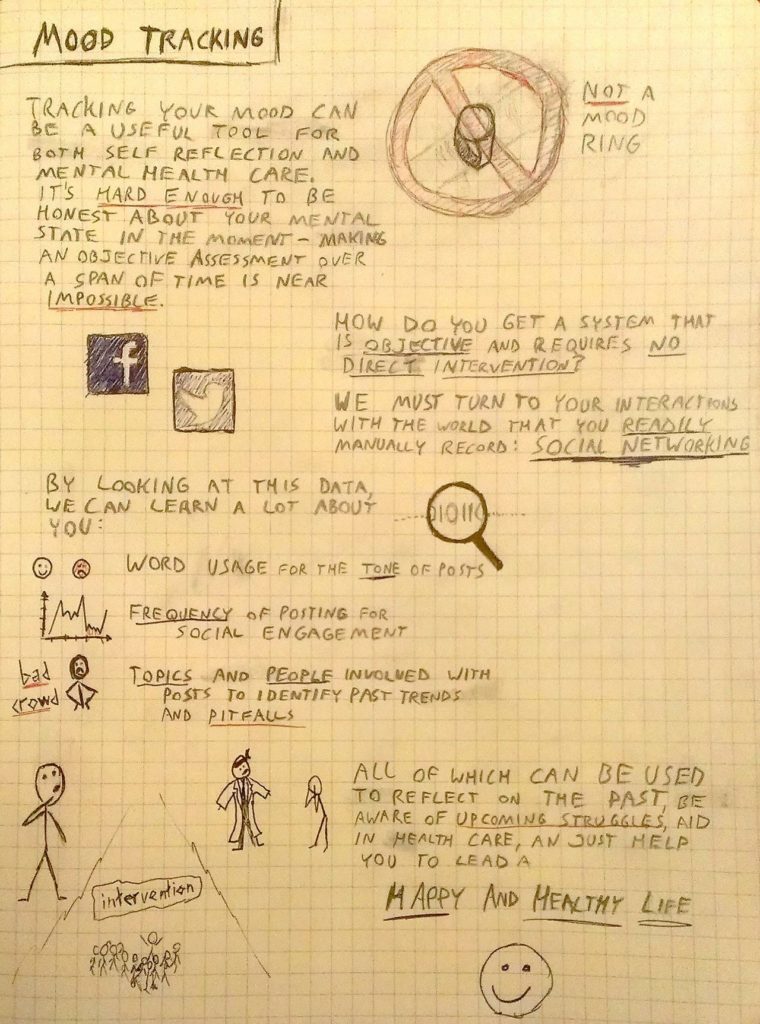 MOOD TRACKING
TRACKING YOUR MOOD CAN
BE A USEFUL TOOL FOR
BOTH SELF REFLECTION AND
MENTAL HEALTH CARE.
IT'S HARD ENOUGH TO BE
HONEST ABOUT YOUR MENTAL
STATE IN THE MOMENT - MAKING
AN OBJECTIVE ASSESSMENT OVER
A SPAN OF TIME IS NEAR
IMPOSSIBLE.
NOT A
MOOD
RING
HOW DO YOU GET A SYSTEM THAT
IS OBJECTIVE AND REQUIRES NO
DIRECT INTERVENTION?
WE MUST TURN TO YOUR INTERACTIONS
WITH THE WORLD THAT YOU READILY
MANUALLY RECORD: SOCIAL NETWORKING
f
BY LOOKING AT THIS DATA,
WE CAN LEARN A LOT ABOUT
YOU:
010110
WORD USAGE FOR THE TONE OF POSTS
FREQUENCY OF POSTING FOR
SOCIAL ENGAGEMENT
bad
crowd
TOPICS AND PEOPLE INVOLVED WITH
POSTS TO IDENTIFY PAST TRENDS
AND PITFALLS
ALL OF WHICH CAN BE USED
TO REFLECT ON THE PAST, BE
AWARE OF UPCOMING STRUGGLES, AID
IN HEALTH CARE, AN JUST HELP
YOU TO LEAD A
HAPPY AND HEALTHY LIFE
intervention